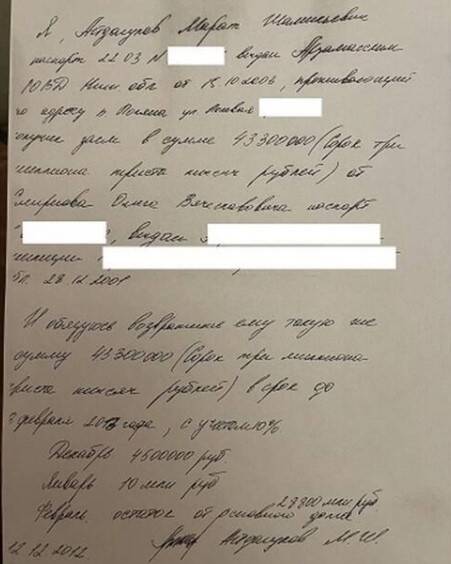 Я, Абдалуков Марат Шамильевич
паспорт 22 03 N выдан Арзамасским
ЮВД Ниж. обл от 15.10.2003, проживающий
по адресу п. ул
получил заем в сумме 43300000 (Сорок три
миллиона триста тысяч рублей) от
Смирнова Олега Вячеславовича паспорт
, выдан
28.12.2001
И обязуюсь возвратить ему такую же
сумму 43300000 (Сорок три миллиона
триста тысяч рублей) в срок до
февраля 2013 года, с учетом 10%
Декабрь 4500000 руб.
Январь 10 млн руб
Февраль остаток от основного долга 28800 млн руб
12.12.2012. М.Ш.